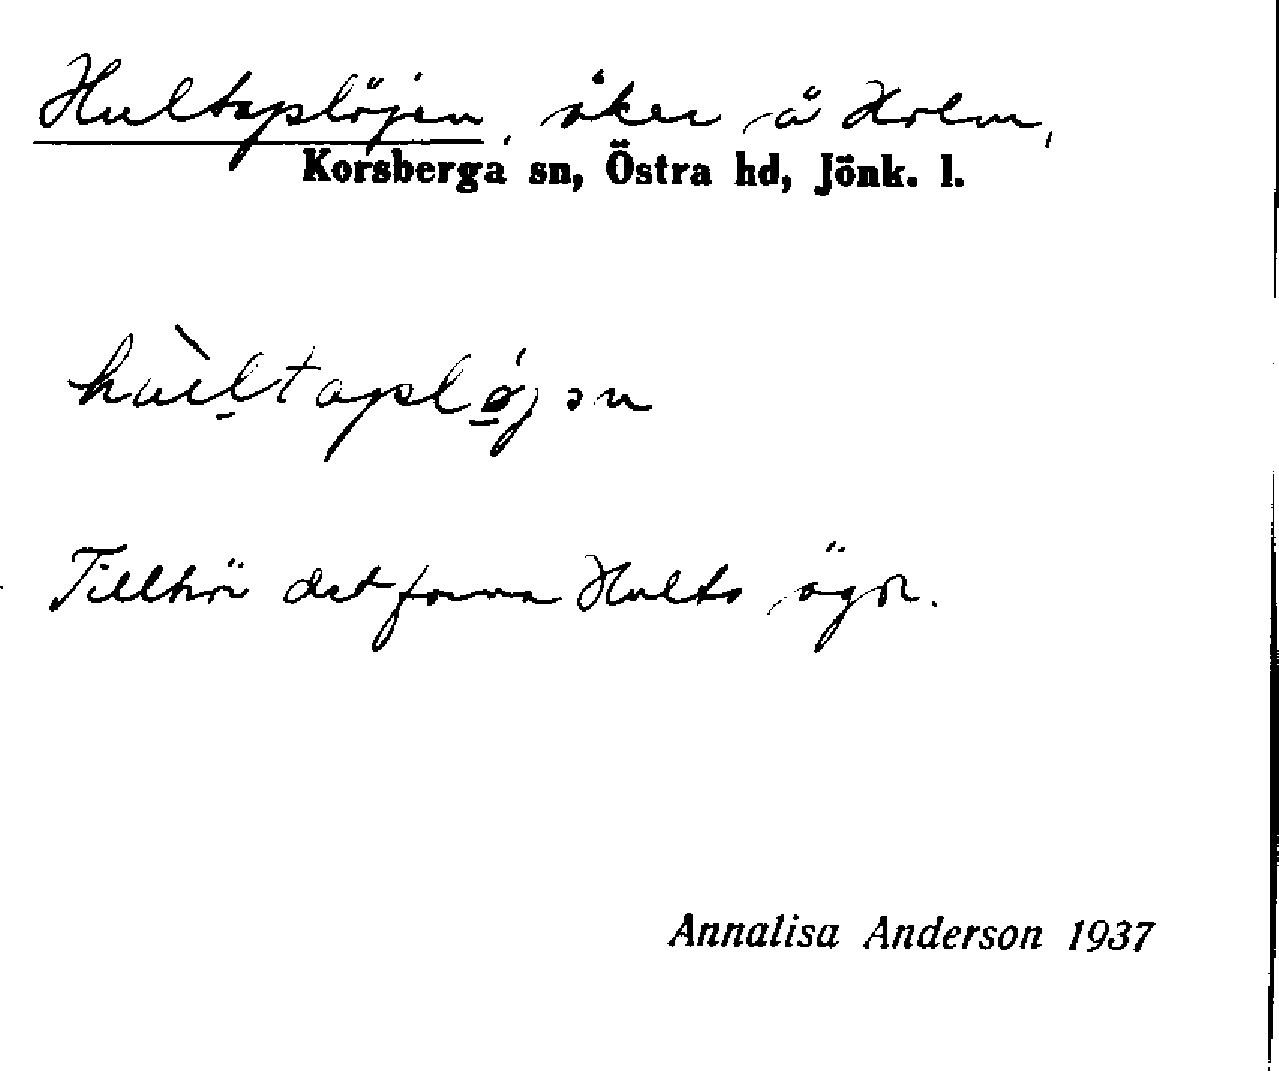 Hultaplöjen, åker å Holm,
Korsberga sn, Östra hd, Jönk. l.
hùltapløjən
Tillhör det forna Hults ägor.
Annalisa Anderson 1937